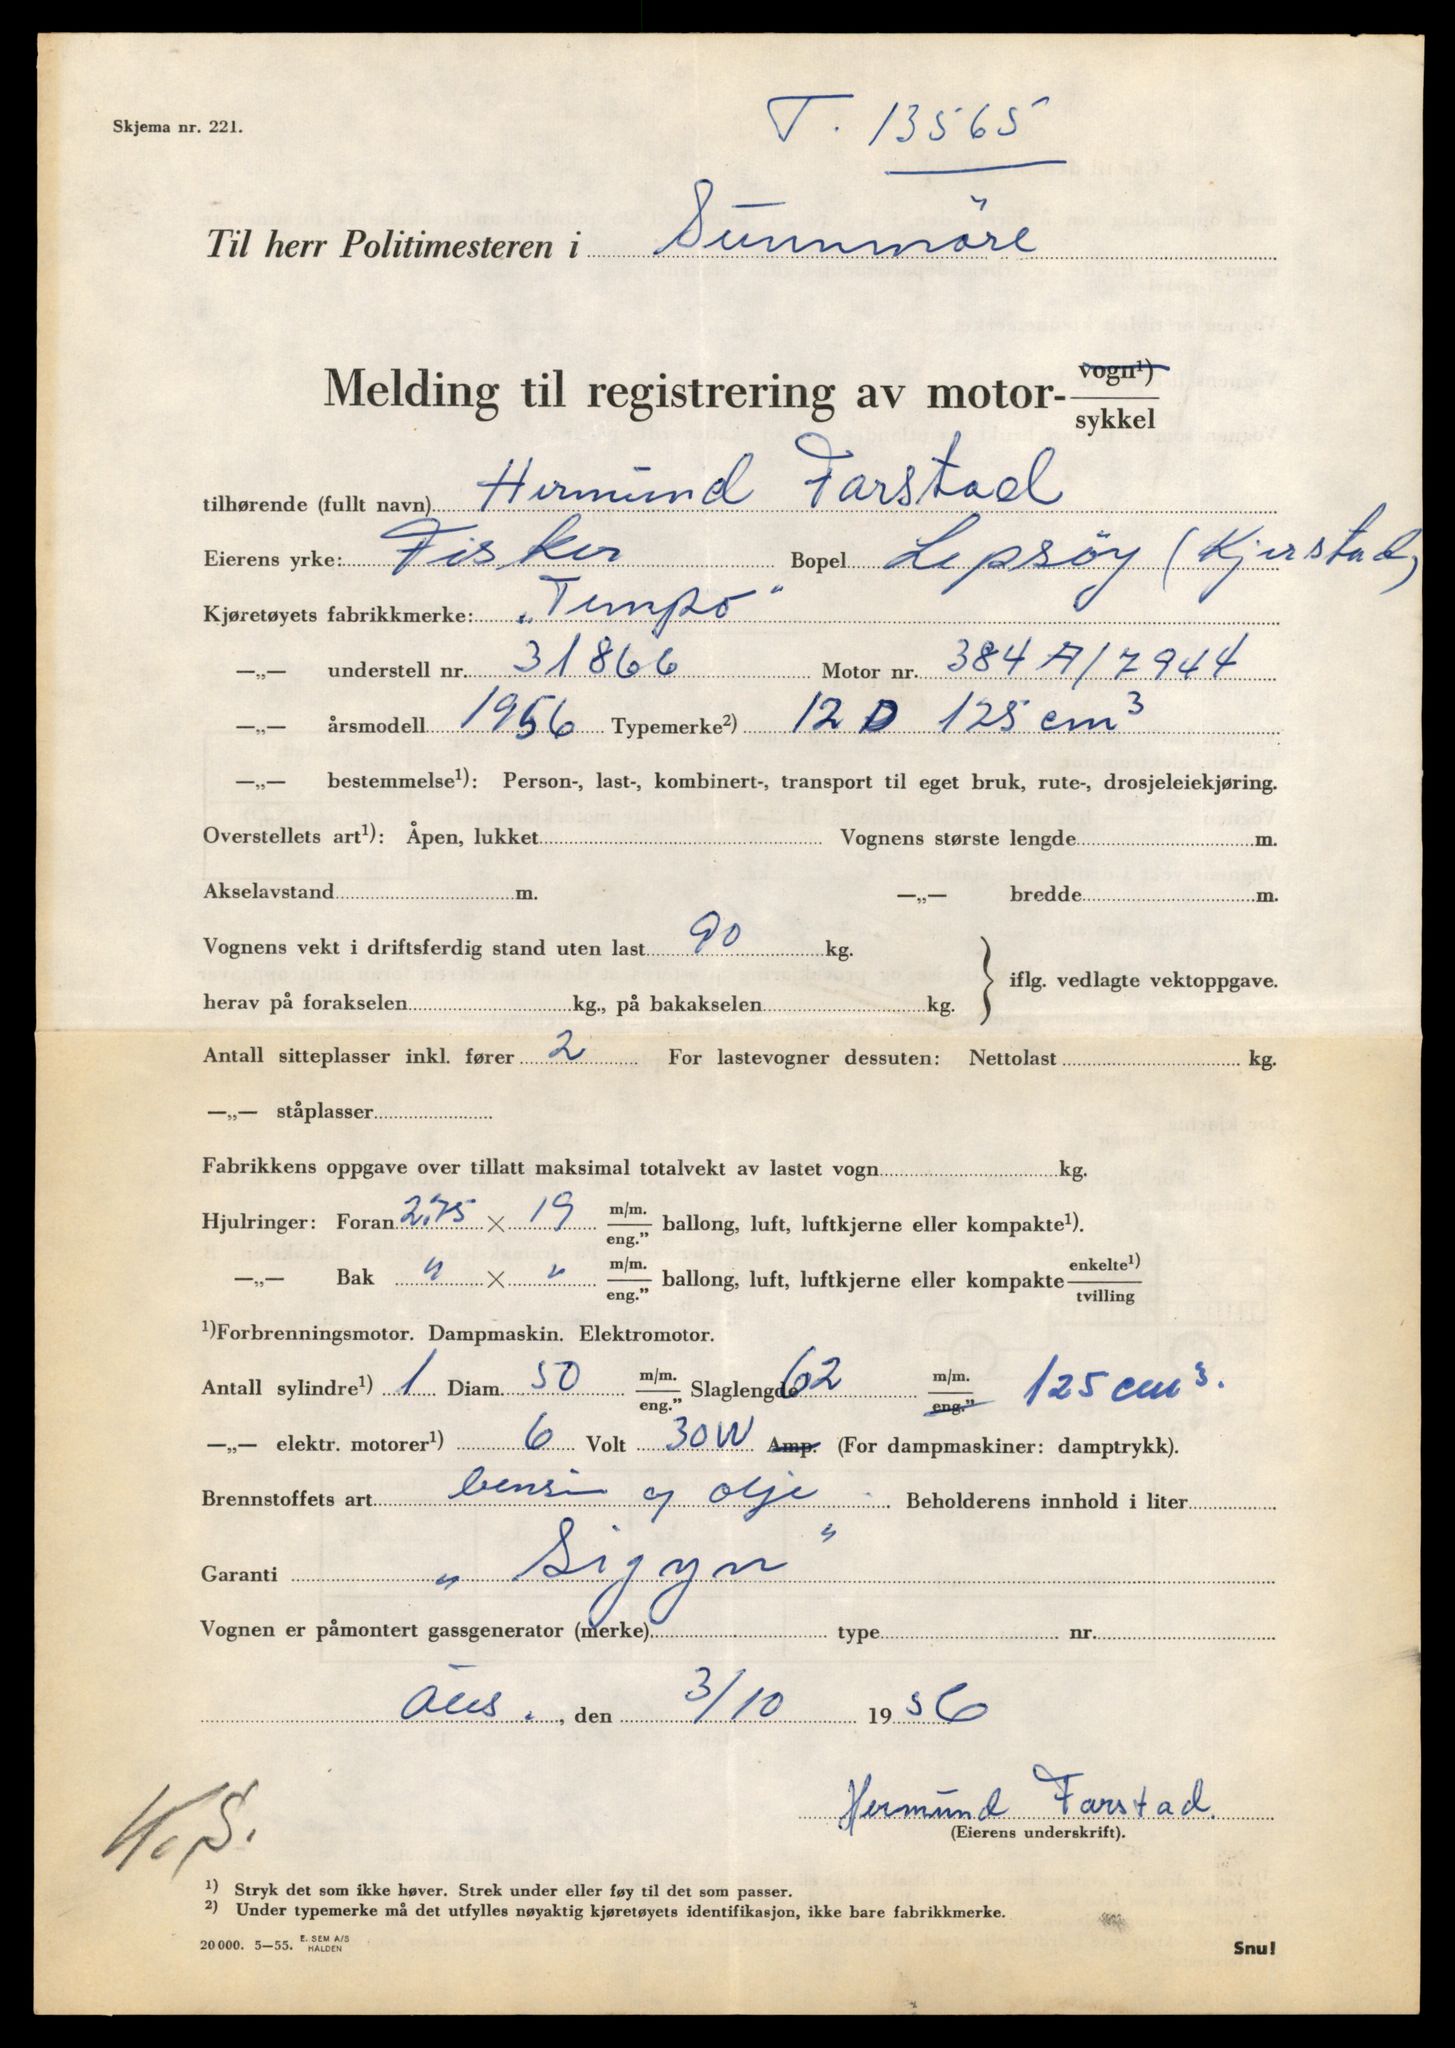 T. 13565
Skjema nr. 221.
Til herr Politimesteren i Sunnmöre
Melding til registrering av motor- vogn¹) / sykkel
tilhørende (fullt navn) Hermund Farstad
Eierens yrke: Fisker Bopel Lepsöy (Kjerstad)
Kjøretøyets fabrikkmerke: „Tempo"
—„— understell nr. 31866 Motor nr. 384 A/7944
—„— årsmodell 1956 Typemerke²) 12 D 125 cm³
—„— bestemmelse¹): Person-, last-, kombinert-, transport til eget bruk, rute-, drosjeleiekjøring.
Overstellets art¹): Åpen, lukket Vognens største lengde m.
Akselavstand m. —„— bredde m.
Vognens vekt i driftsferdig stand uten last 90 kg.
herav på forakselen kg., på bakakselen kg. } iflg. vedlagte vektoppgave.
Antall sitteplasser inkl. fører 2 For lastevogner dessuten: Nettolast kg.
—„— ståplasser
Fabrikkens oppgave over tillatt maksimal totalvekt av lastet vogn kg.
Hjulringer: Foran 2.75 × 19 m/m. / eng.” ballong, luft, luftkjerne eller kompakte¹).
—„— Bak " × " m/m. / eng.” ballong, luft, luftkjerne eller kompakte enkelte¹) / tvilling
¹)Forbrenningsmotor. Dampmaskin. Elektromotor.
Antall sylindre¹) 1 Diam. 50 m/m. / eng.” Slaglengde 62 m/m. / eng.” 125 cm³.
—„— elektr. motorer¹) 6 Volt 30W Amp. (For dampmaskiner: damptrykk).
Brennstoffets art bensin og olje Beholderens innhold i liter
Garanti „Sigyn"
Vognen er påmontert gassgenerator (merke) type nr.
, den 3/10 1956
Hermund Farstad.
(Eierens underskrift).
K. S.
¹) Stryk det som ikke høver. Strek under eller føy til det som passer.
²) Under typemerke må det utfylles nøyaktig kjøretøyets identifikasjon, ikke bare fabrikkmerke.
20 000. 5—55. E. SEM A/S HALDEN
Snu!